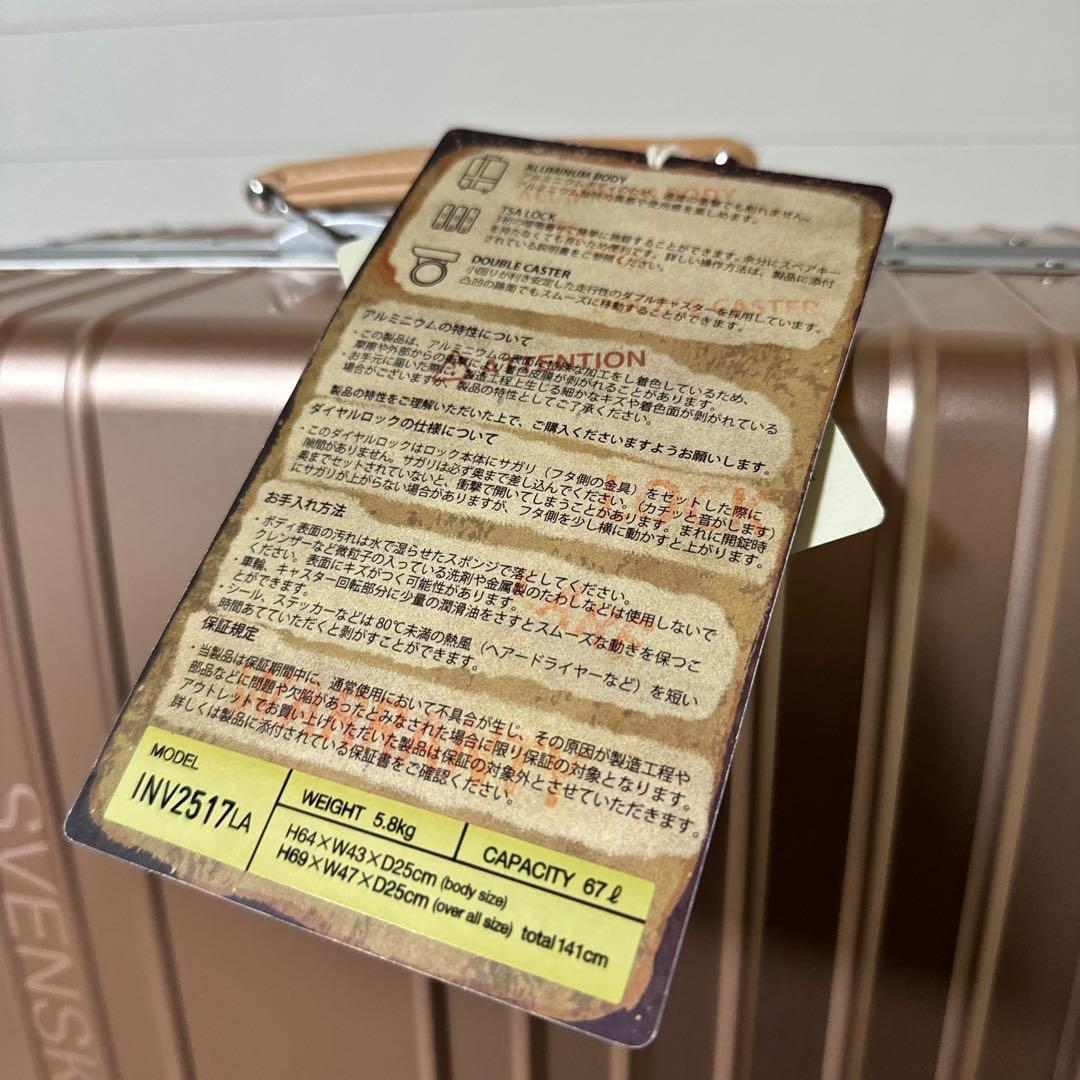 ALUMINUM BODY
アルミニウムボディのため、通常の衝撃でも割れません。
アルミニウム独特の質感や使用感を楽しめます。
TSA LOCK
3桁の暗証番号で簡単に施錠することができます。余分にスペアキー
を持たなくても良いため便利です。詳しい操作方法は、製品に添付
されている説明書をご参照ください。
DOUBLE CASTER
小回りが利き安定した走行性のダブルキャスターを採用しています。
凸凹の路面でもスムーズに移動することができます。
BODY
CASTER
ATTENTION
アルミニウムの特性について
・この製品は、アルミニウムの表面に特殊な加工をし着色しているため、
摩擦や外部からの衝撃により着色皮膜が剥がれることがあります。
・お手元に届いた際に、製造工程上生じる細かなキズや着色面が剥がれている
場合がございますが、製品の特性としてご了承ください。
製品の特性をご理解いただいた上で、ご購入くださいますようお願いします。
ダイヤルロックの仕様について
・このダイヤルロックはロック本体にサガリ（フタ側の金具）をセットした際に
隙間がありません。サガリは必ず奥まで差し込んでください。（カチッと音がします）
奥までセットされていないと、衝撃で開いてしまうことがあります。まれに開錠時
にサガリが上がらない場合がありますが、フタ側を少し横に動かすと上がります。
お手入れ方法
・ボディ表面の汚れは水で湿らせたスポンジで落としてください。
クレンザーなど微粒子の入っている洗剤や金属製のたわしなどは使用しないで
ください。表面にキズがつく可能性があります。
・車輪、キャスター回転部分に少量の潤滑油をさすとスムーズな動きを保つこ
とができます。
・シール、ステッカーなどは80℃未満の熱風（ヘアードライヤーなど）を短い
時間あてていただくと剥がすことができます。
保証規定
・当製品は保証期間中に、通常使用において不具合が生じ、その原因が製造工程や
部品などに問題や欠陥があったとみなされた場合に限り保証の対象となります。
アウトレットでお買い上げいただいた製品は保証の対象外とさせていただきます。
詳しくは製品に添付されている保証書をご確認ください。
MODEL
INV2517LA
WEIGHT 5.8kg
CAPACITY 67ℓ
H64×W43×D25cm (body size)
H69×W47×D25cm (over all size) total 141cm
SVENSK